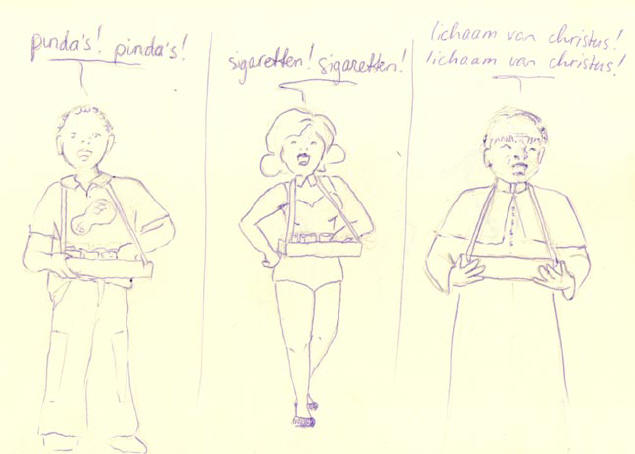 pinda's! pinda's!
sigaretten! sigaretten!
lichaam van christus!
lichaam van christus!